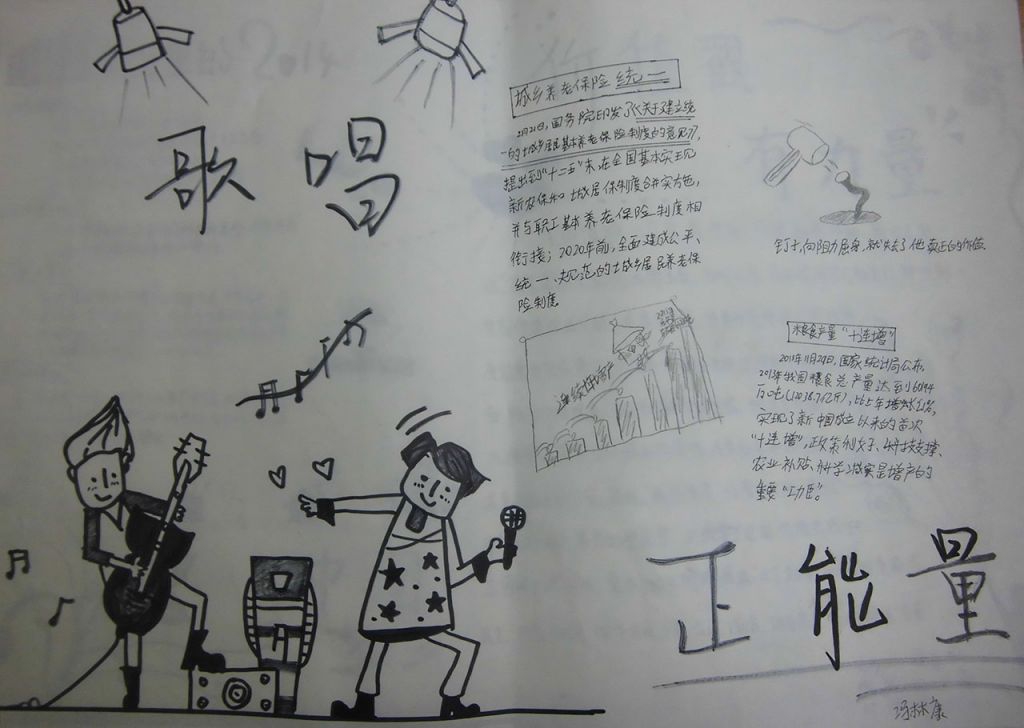 歌 唱
城乡养老保险 统一
2月21日,国务院印发了《关于建立统
一的城乡居民基本养老保险制度的意见》,
提出到"十二五"末,在全国基本实现
新农保和城居保制度合并实施,
并与职工基本养老保险制度相
衔接;2020年前,全面建成公平、
统一、规范的城乡居民养老保
险制度
钉子向阻力屈身,就失去了他真正的价值
连续增产
2013
粮食产量"十连增"
2013年11月29日,国家统计局公布,
2013年我国粮食总产量达到60194
万吨(12038.7亿斤),比上年增长2.1%,
实现了新中国成立以来的首次
"十连增",政策利好、科技支撑、
农业补贴、科学减灾是增产的
重要"功臣"。
正 能 量
冯林康